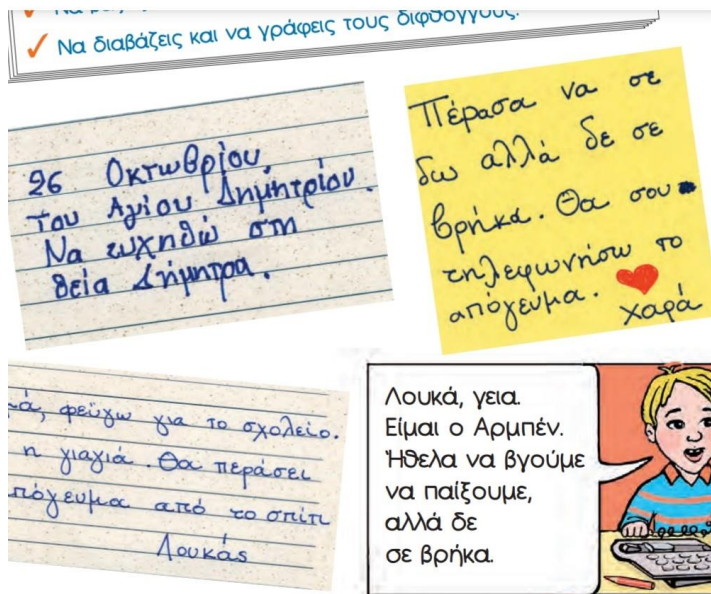 ✓ Να διαβάζεις και να γράφεις τους διφθόγγους.
26 Οκτωβρίου,
του Αγίου Δημητρίου.
Να ευχηθώ στη
θεία Δήμητρα.
Πέρασα να σε
δω αλλά δε σε
βρήκα. Θα σου
τηλεφωνήσω το
απόγευμα.
Χαρά
φεύγω για το σχολείο.
η γιαγιά. Θα περάσει
από το σπίτι
Λουκάς
Λουκά, γεια.
Είμαι ο Αρμπέν.
Ήθελα να βγούμε
να παίξουμε,
αλλά δε
σε βρήκα.